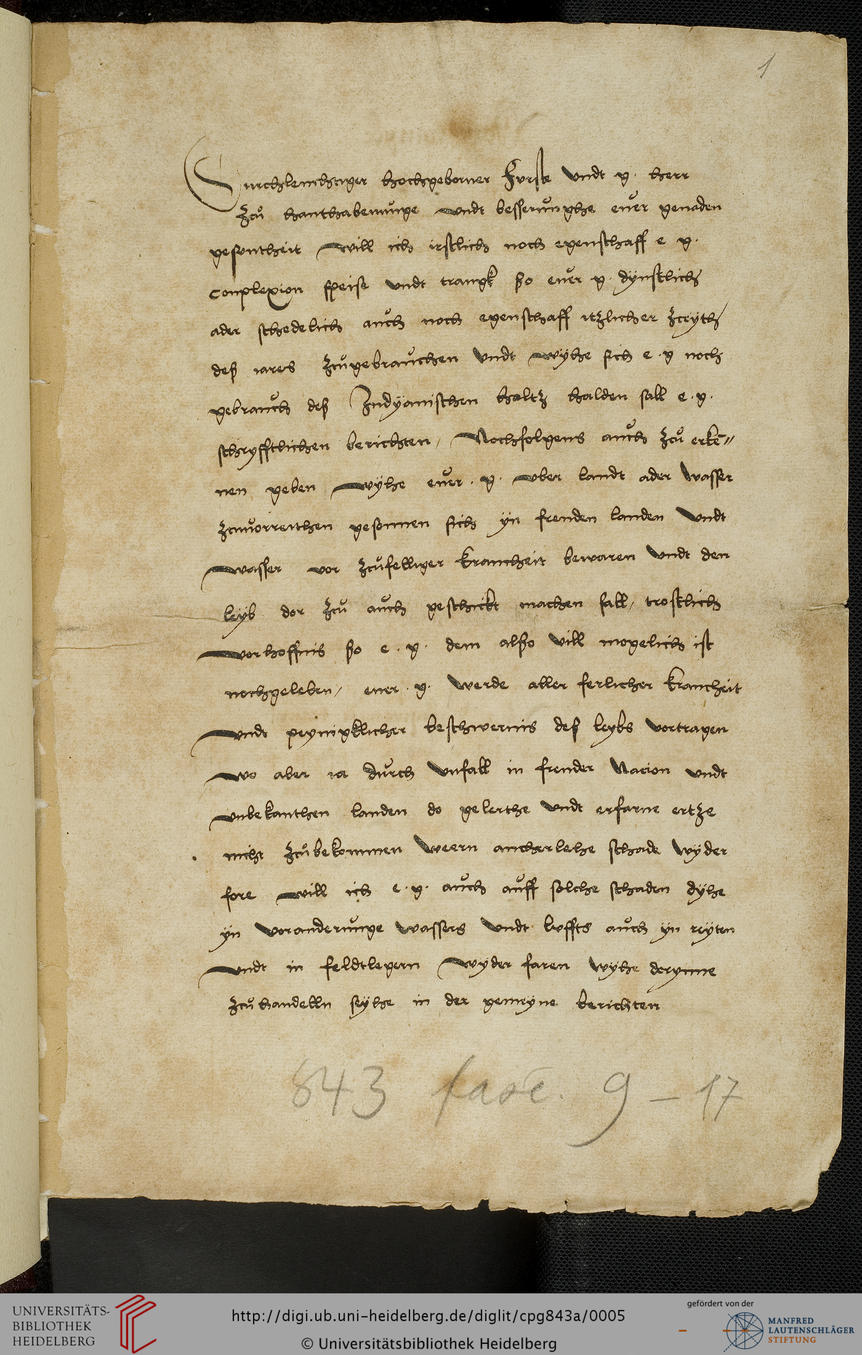 1
Durchleuchtiger hochgeborner Furste vndt g. herr
Zcu hanthabenunge vndt besserunghe euer genaden
gesontheit will ich irstlich noch egenschafft e g.
Complexion speise vndt trangk so euer g. dynstlich
ader schedelich auch noch egenschafft itzlicher zceyth
deß iares zcugebrauchen vndt wyhe sich e. g noch
gebrauch deß Indyanischen holtz halden sall e. g.
schryfftlichen berichten, Nochfolgens auch zcu erke„
nen geben wyhe euer. g. vber landt ader wasser
zcuuorreithen gesonnen sich yn frenden landen vndt
wasser vor zcufelliger kranckheit bewaren vndt den
leyb dor zcu auch geschickt machen sall, trostlich
vorhoffnis so e. g. dem alßo vill mogelich ist
nochgeleben, euer. g. werde aller ferlicher kranckheit
vndt peynigklicher beschwernis deß leybs vortragen
wo aber ia durch vnfall in frender Nacion vndt
vnbekanthen landen do gelerthe vndt erfarne ertze
nicht zcubekommen weern ancherlehe schade wyder
fore will ich e. g. auch auff solche schaden dyhe
yn voranderunge wassers vndt luffts auch yn reyten
vndt in feldtlegern wyder faren wyhe dorynne
zcuhandelln seyhe in der gemeyne berichten
843 fasc. 9 – 17
UNIVERSITÄTS-
BIBLIOTHEK
HEIDELBERG
http://digi.ub.uni-heidelberg.de/diglit/cpg843a/0005
© Universitätsbibliothek Heidelberg
gefördert von der
MANFRED
LAUTENSCHLÄGER
STIFTUNG